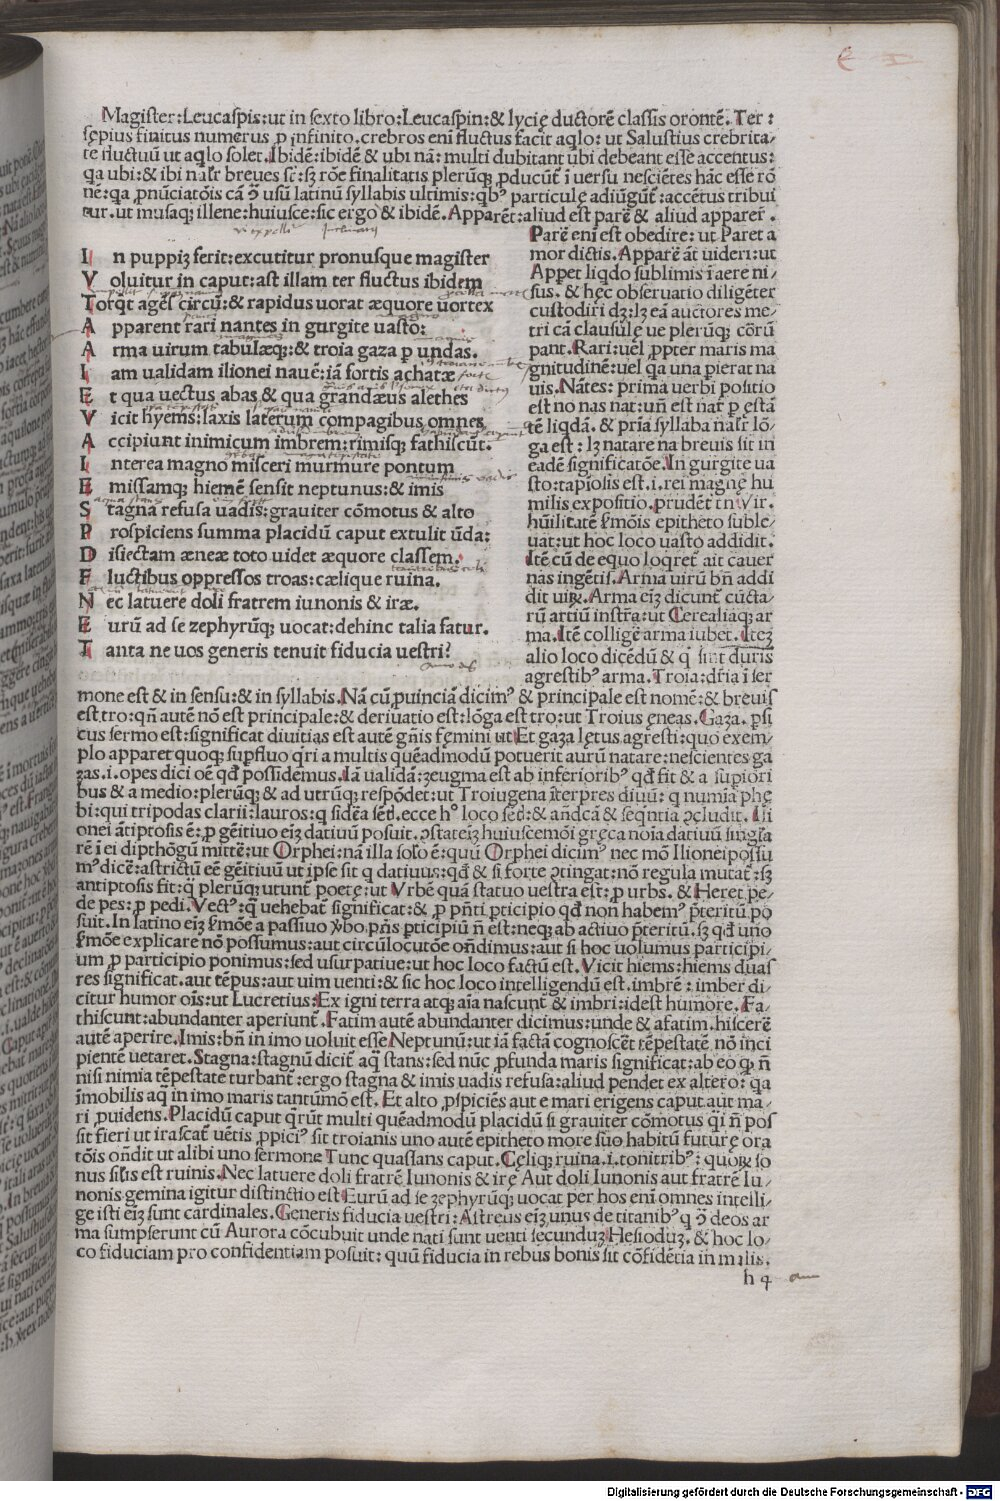 Magister:Leucaspis:ut in sexto libro:Leucaspin:& lycię ductorē classis orontē. Ter:
sępius finitus numerus ꝑ infinito.crebros eni fluctus facit aqlo: ut Salustius crebrita-
te fluctuū ut aqlo solet.Ibidē:ibidē & ubi nā: multi dubitant ubi debeant esse accentus:
qa ubi:& ibi naľr breues sť:sꝫ rōe finalitatis plerūqꝫ ꝓducūť ī uersu nesciētes hāc esse rō
ne:qa ꝓnūciatōis cā ꝯ usū latinū syllabis ultimis:qbꝰ particulę adiūgūť:accētus tribui
tur.ut musaqꝫ illene:huiusce:sic ergo & ibidē. Apparēt:aliud est parē & aliud apparer.
I n puppiꝫ ferit:excutitur pronusque magister
V oluitur in caput:ast illam ter fluctus ibidem
Torqť agēs circū:& rapidus uorat æquore uortex
A pparent rari nantes in gurgite uasto:
A rma uirum tabulæqꝫ:& troia gaza ꝑ undas.
I am ualidam ilionei nauē:iā fortis achatæ
E t qua uectus abas & qua grandæus alethes
V icit hyems:laxis laterum compagibus omnes
A ccipiunt inimicum imbrem:rimisqꝫ fathiscūt.
I nterea magno misceri murmure pontum
E missamqꝫ hiemē sensit neptunus:& imis
S tagna refusa uadis:grauiter cōmotus & alto
P rospiciens summa placidū caput extulit ūda:
D isiectam æneæ toto uidet æquore classem.
F luctibus oppressos troas:cælique ruina.
N ec latuere doli fratrem iunonis & iræ.
E urū ad se zephyrūqꝫ uocat:dehinc talia fatur.
T anta ne uos generis tenuit fiducia uestri?
Parē eni est obedire: ut Paret a
mor dictis. Apparē āt uideri:ut
Appet liqdo sublimis ī aere ni
sus. & hęc obseruatio diligēter
custodiri dꝫ:lꝫ eā auctores me-
tri cā clausulę ue plerūqꝫ cōrū
pant. Rari: uel ꝓpter maris ma
gnitudinē:uel qa una pierat na
uis. Nātes: prima uerbi positio
est no nas nat: uñ est naľ ꝑ ęstā
tē liqdā. & pria syllaba naľr lō-
ga est: lꝫ natare na breuis sit in
eadē significatōe. In gurgite ua
sto:tapiosis est .i. rei magnę hu
milis expositio. prudēť tñ Vir.
hūilitatē ẜmōis epitheto suble-
uat:ut hoc loco uasto addidit.
Itē cū de equo loqreť ait cauer
nas ingētis. Arma uirū bñ addi
dit uiꝝ. Arma eiꝫ dicunť cūcta-
rū artiū instra: ut Cerealiaqꝫ ar
ma. Itē colligē arma iubet. Iteꝫ
alio loco dicēdū & q sint duris
agrestibꝰ arma. Troia: dr̄ia ī ser
mone est & in sensu:& in syllabis. Nā cū ꝓuinciā dicimꝰ & principale est nomē:& breuis
est.tro:qñ autē nō est principale:& deriuatio est:lōga est tro: ut Troius ęneas. Gaza. ꝑsi
cus sermo est:significat diuitias est autē gn̄is fęmini ut Et gaza lętus agresti:quo exem-
plo apparet quoqꝫ supfluo qri a multis quēadmodū potuerit aurū natare:nescientes ga
zas .i. opes dici oē qđ possidemus. Iā ualidā:zeugma est ab inferioribꝰ qđ fit & a supiori
bus & a medio:plerūqꝫ & ad utrūqꝫ respōdet:ut Troiugena īterpres diuū: q numīa phę
bi:qui tripodas clarii:lauros:q sidēa sēđ.ecce hº loco sēđ:& añdcā & seqntia ꝯcludit. Ili
onei ātiptosis ē:ꝑ gēitiuo eiꝫ datiuū posuit. ꝯstateiꝫ huiuscemōi gręca noīa datiuū singľa
rē ī ei dipthōgū mittē: ut Orphei: nā illa solo ē:quū Orphei dicimꝰ nec mō Ilionei possu
mꝰ dicē:astrictū eē gēitiuū ut ipse sit q datiuus:qđ & si forte ꝯtingat:nō regula mutať:sꝫ
antiptosis fit:q plerūqꝫ utunť poetę:ut Vrbē quā statuo uestra est:ꝑ urbs. & Hereť pe-
de pes: ꝑ pedi. Vectꝰ:q uehebať significat:& ꝑ pñti pticipio qđ non habemꝰ pteritū po
suit. In latino eiꝫ ẜmōe a passiuo ꝟbo pñs pticipiū ñ est:neqꝫ ab actiuo pteritū.sꝫ qđ uno
ẜmōe explicare nō possumus:aut circūlocutōe oñdimus:aut si hoc uolumus participi-
um ꝑ participio ponimus:sed usurpatiue:ut hoc loco factū est. Vicit hiems:hiems duas
res significat.aut tēpus:aut uim uenti:& sic hoc loco intelligendū est.imbrē: imber di-
citur humor oīs:ut Lucretius:Ex igni terra atqꝫ aīa nascunť & imbri:idest humore. Fa-
thiscunt:abundanter aperiunť. Fatim autē abundanter dicimus:unde & afatim.hiscerē
autē aperire. Imis:bñ in imo uoluit esse Neptunū:ut iā factā cognosceť tēpestatē nō inci
pientē uetaret. Stagna:stagnū diciť aq stans:sed nūc ꝓfunda maris significat:ab eo qꝙ ñ
nisi nimia tēpestate turbanť:ergo stagna & imis uadis refusa:aliud pendet ex altero: qa
īmobilis aq in imo maris tantūmō est. Et alto ꝓspiciēs aut e mari erigens caput aut ma-
ri ꝓuidens. Placidū caput qrūt multi quēadmodū placidū si grauiter cōmotus qi ñ pos
sit fieri ut irascať uētis ꝓpiciꝰ sit troianis uno autē epitheto more suo habitū futurę ora
tōis oñdit ut alibi uno sermone Tunc quassans caput. Cęliqꝫ ruina .i. tonitribꝰ: quoꝝ so
nus silis est ruinis. Nec latuere doli fratrē Iunonis & irę Aut doli Iunonis aut fratrē Iu-
nonis gemina igitur distinctio est Eurū ad se zephyrūqꝫ uocat per hos eni omnes intelli-
ge isti eiꝫ sunt cardinales. Generis fiducia uestri: Astreus eiꝫ unus de titanibꝰ q ꝯ deos ar
ma sumpserunt cū Aurora cōcubuit unde nati sunt uenti secunduꝫ Hesioduꝫ. & hoc lo-
co fiduciam pro confidentiam posuit: quū fiducia in rebus bonis sit cōfidētia in malis.
h 4
Digitalisierung gefördert durch die Deutsche Forschungsgemeinschaft - DFG